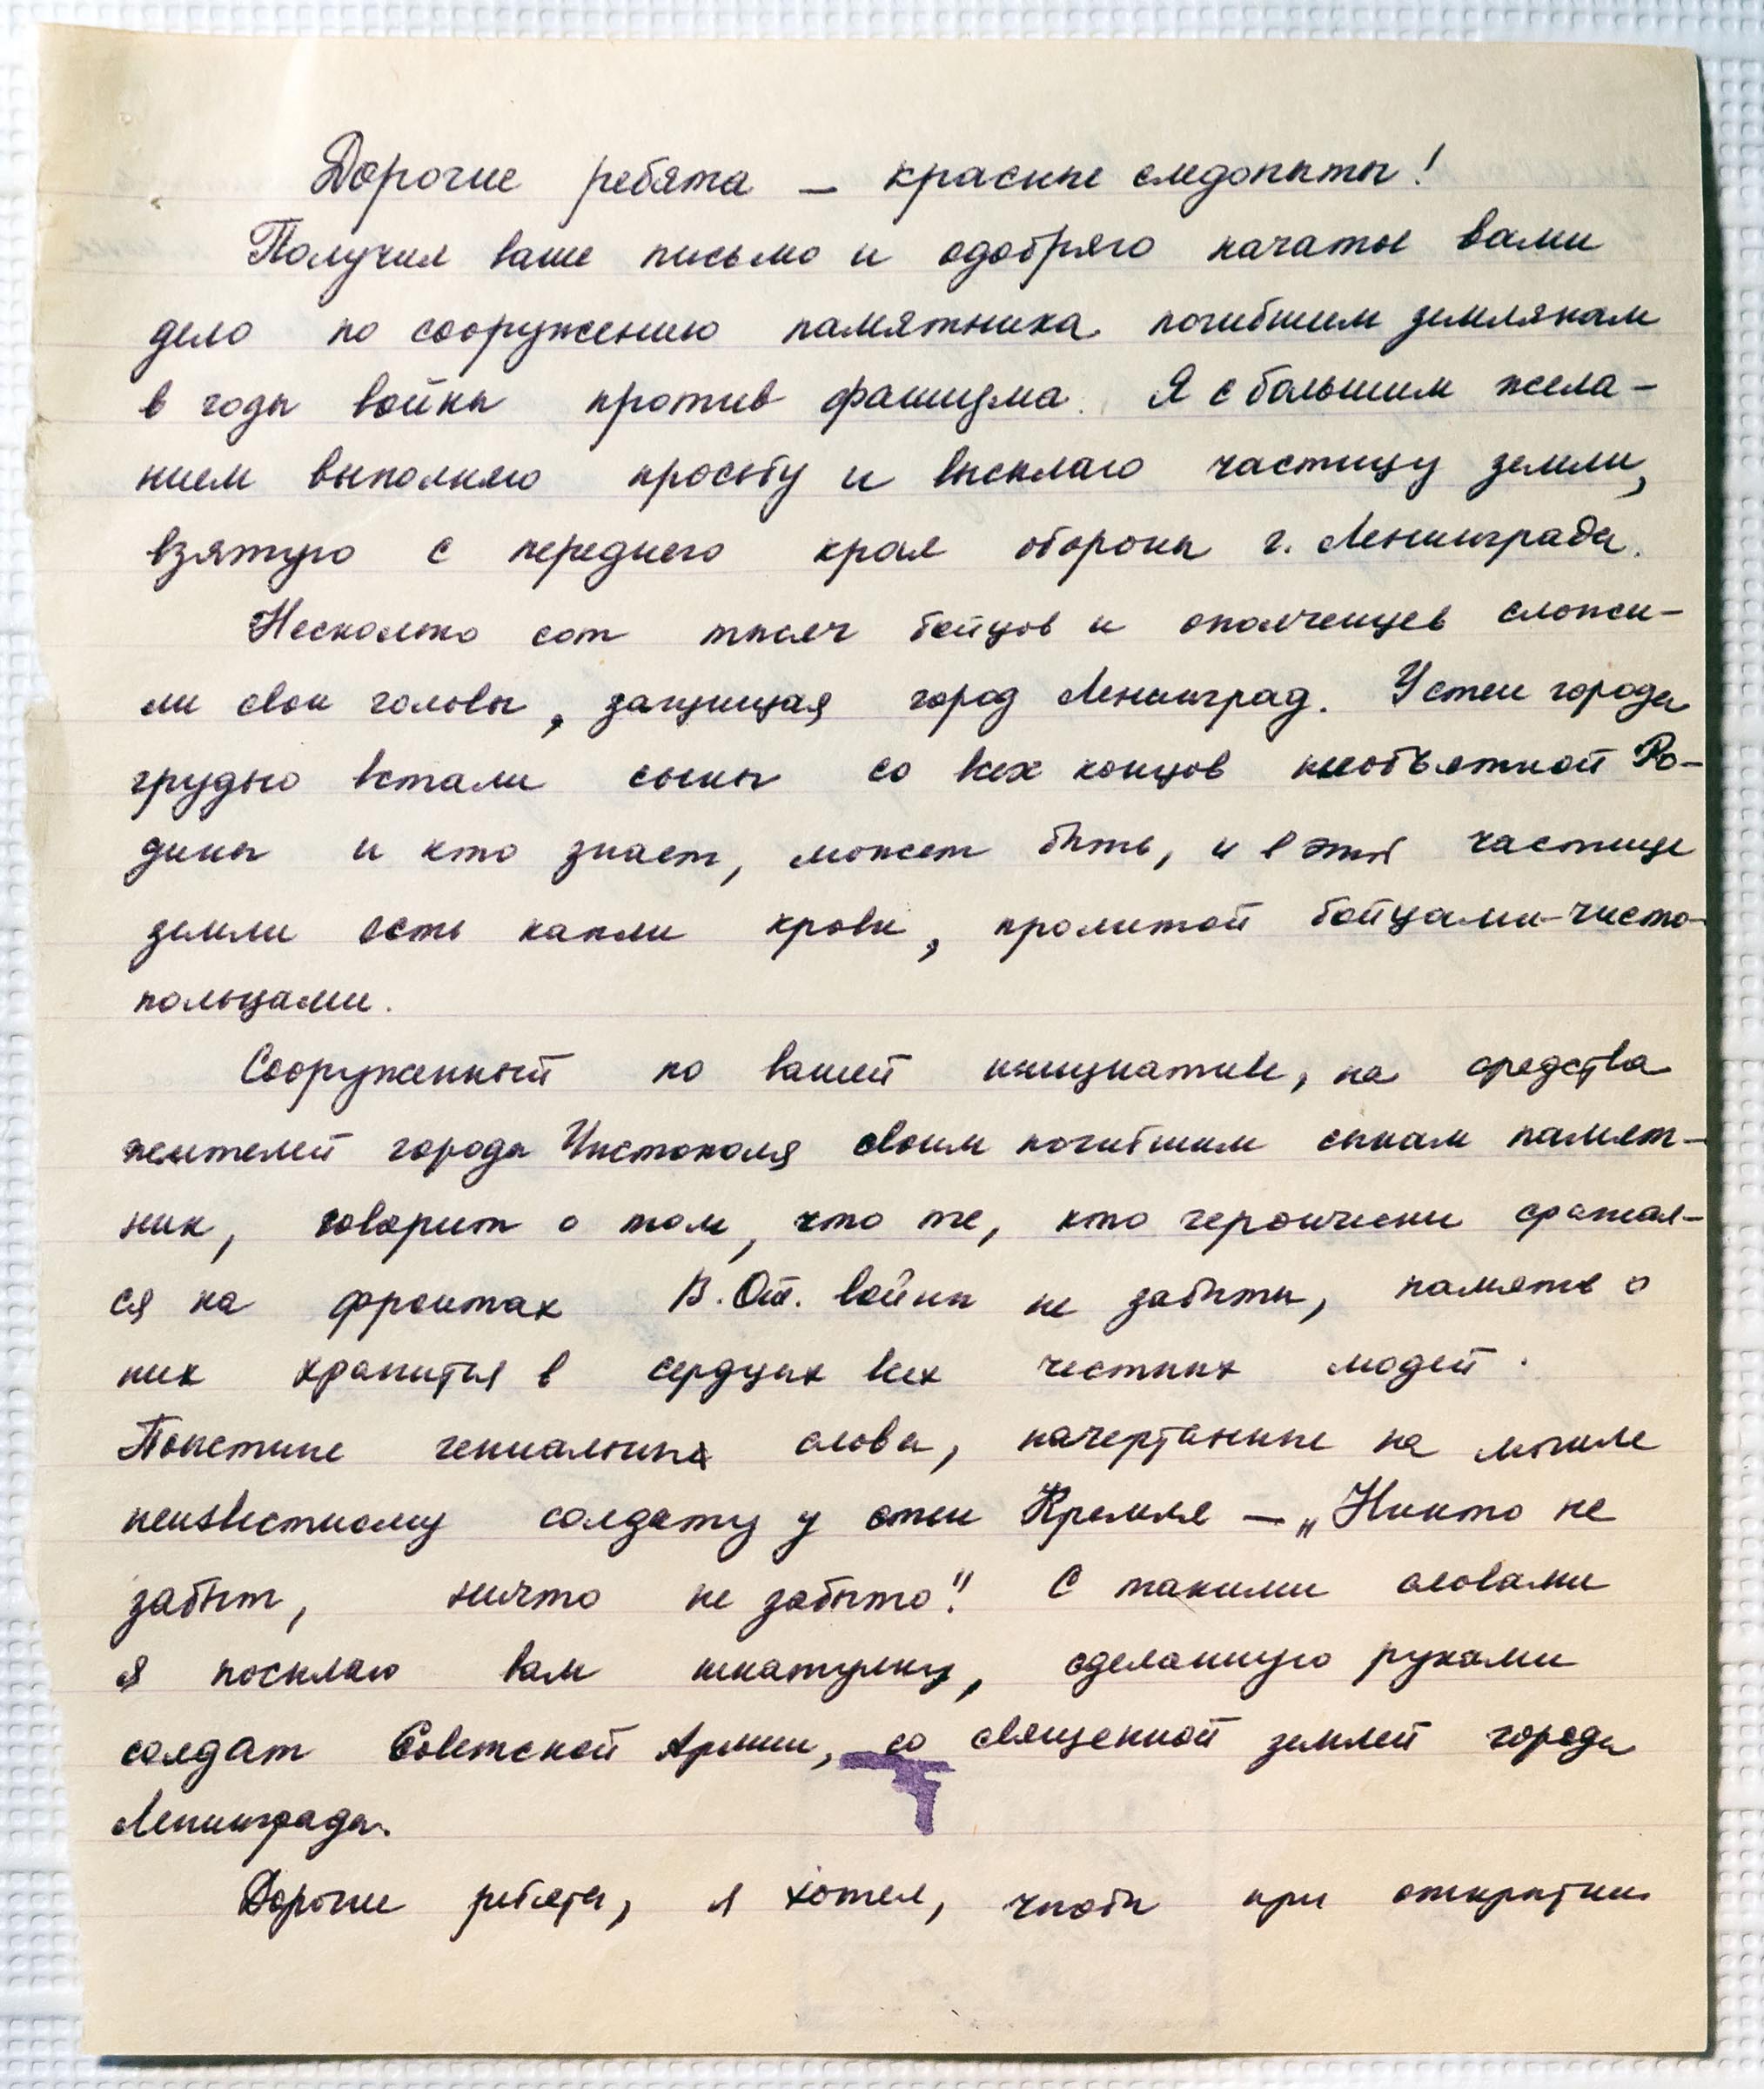 Дорогие ребята — красные следопыты!
Получил ваше письмо и одобряю начатое вами
дело по сооружению памятника погибшим землякам
в годы войны против фашизма. Я с большим жела-
нием выполняю просьбу и высылаю частицу земли,
взятую с переднего края обороны г. Ленинграда.
Несколько сот тысяч бойцов и ополченцев сложи-
ли свои головы, защищая город Ленинград. У стен города
грудью встали сыны со всех концов необъятной Ро-
дины и кто знает, может быть, и в этой частице
земли есть капли крови, пролитой бойцами-чисто-
польцами.
Сооруженный по вашей инициативе, на средства
жителей города Чистополя своим погибшим сынам памят-
ник, говорит о том, что те, кто героически сражал-
ся на фронтах В. От. войны не забыты, память о
них хранится в сердцах всех честных людей.
Поистине гениальны слова, начертанные на могиле
неизвестному солдату у стен Кремля — „Никто не
забыт, ничто не забыто“! С такими словами
я посылаю вам шкатулку, сделанную руками
солдат Советской Армии, со священной землей города
Ленинграда.
Дорогие ребята, я хотел, чтобы при открытии